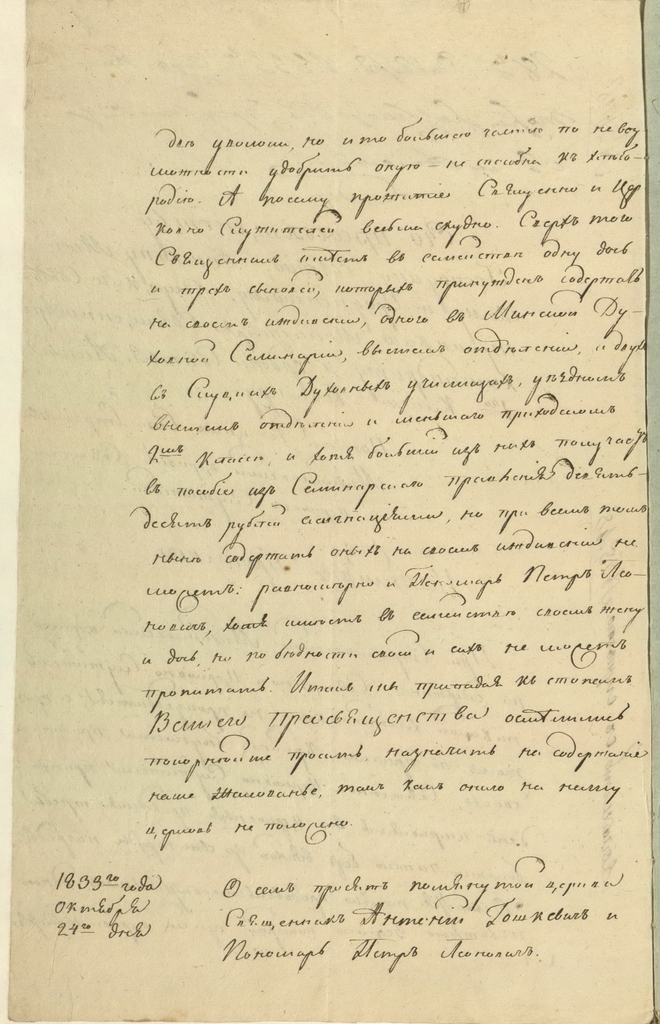 даю уволоки, но и то большею частию по невоз-
можности удобрить оную — не способна къ хлѣбо-
родiю. А посему прожитiе Священно и Цер-
ковно Служителей весьма скудно. Сверхъ того
Священникъ имѣетъ въ семействѣ одну дочь
и трехъ сыновей, которыхъ принужденъ содержать
на своемъ иждивенiи, одного въ Минской Ду-
ховной Семинарiи, высшемъ отдѣленiи, и двухъ
въ Слуцкихъ Духовныхъ училищахъ, уѣздномъ
высшемъ отдѣленiи и меньшаго приходскомъ
2мъ Классѣ, и хотя большiй изъ нихъ получаетъ
въ пособiе изъ Семинарскаго правленiя девять-
десятъ рублей ассигнацiями, но при всемъ томъ
нынѣ содержать оныхъ на своемъ иждивенiи не
можетъ: равномѣрно и Пономарь Петръ Лео-
новичъ, хотя имѣетъ въ семействѣ своемъ жену
и дочь, но по бѣдности своей и сихъ не можетъ
пропитать. Итакъ мы припадая къ стопамъ
Вашего Преосвященства осмѣлились
покорнѣйше просить назначить на содержанiе
наше жалованье, такъ какъ онаго на нашу
церковь не положено.
1833го года
октября
24го дня
О семъ просятъ помянутой церкви
Священникъ Антонiй Гошкевичъ и
Пономарь Петръ Леоновичъ.